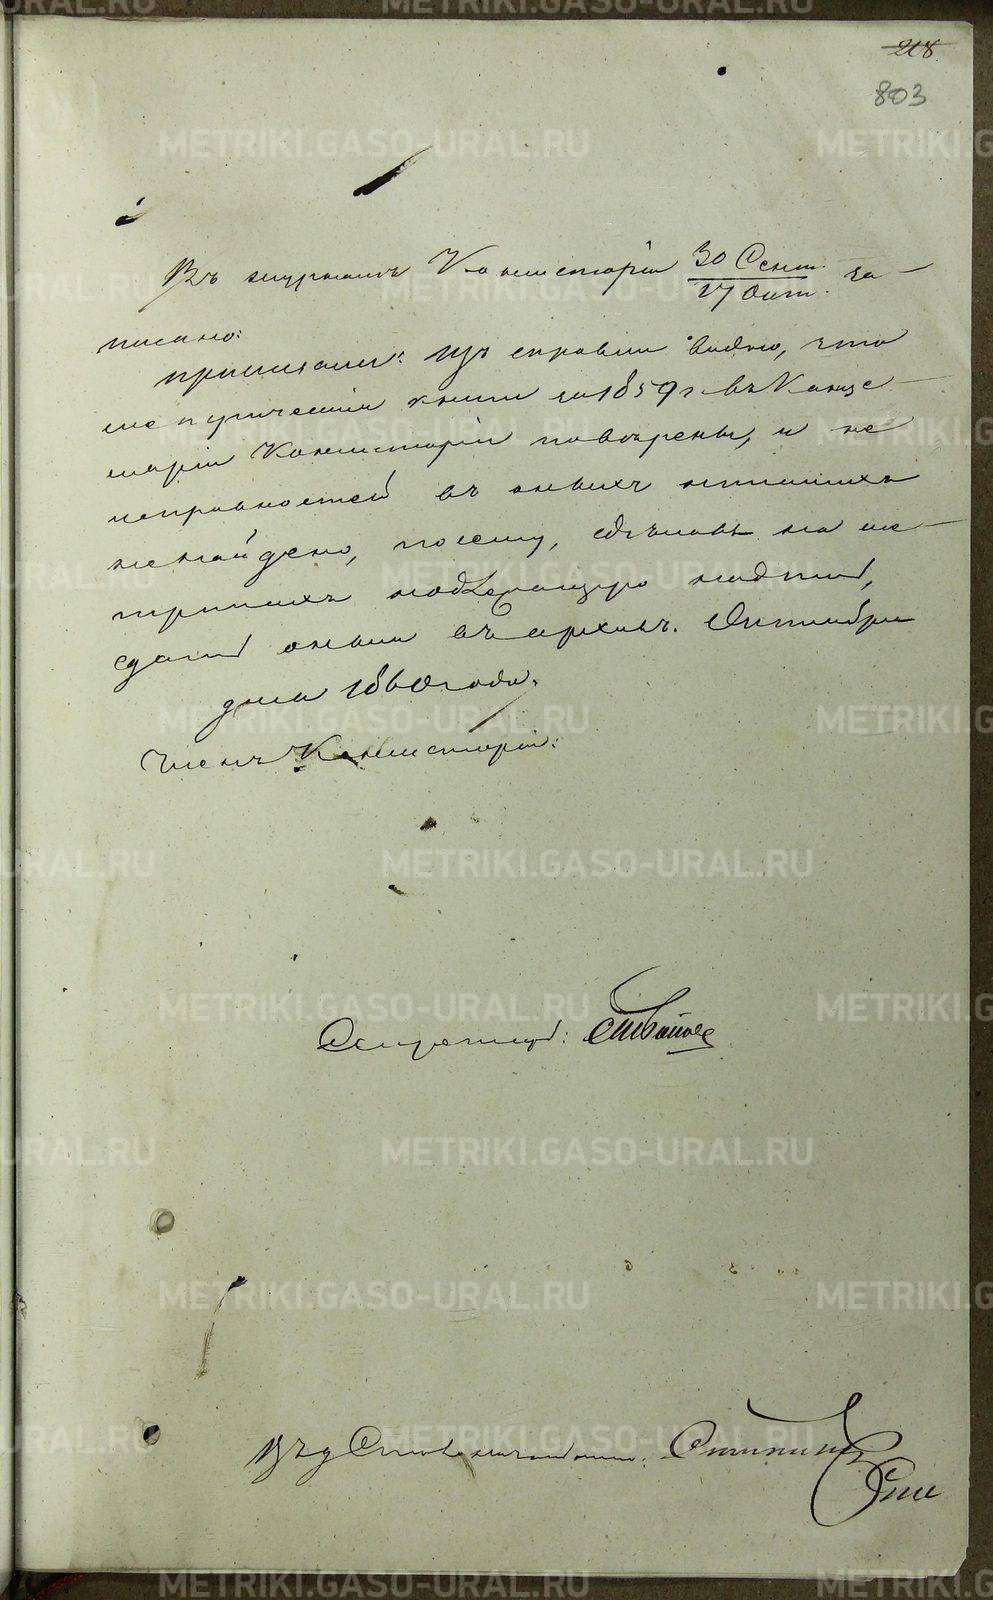 218
803
Въ журналѣ Консисторіи 30 Сент. за-
17 Окт.
писано:
приказали: Изъ справки видно, что
метрическія книги за 1859 г въ Канце-
ляріи Консисторіи повѣрены, и не
исправностей въ оныхъ никакихъ
ненайдено, почему, сдѣлавъ на ме-
трикахъ надлежащую надпись,
сдать оныя въ архивъ. Октября
дня 1860 года.
Членъ Консисторіи:
Секретарь:
Столоначальника: